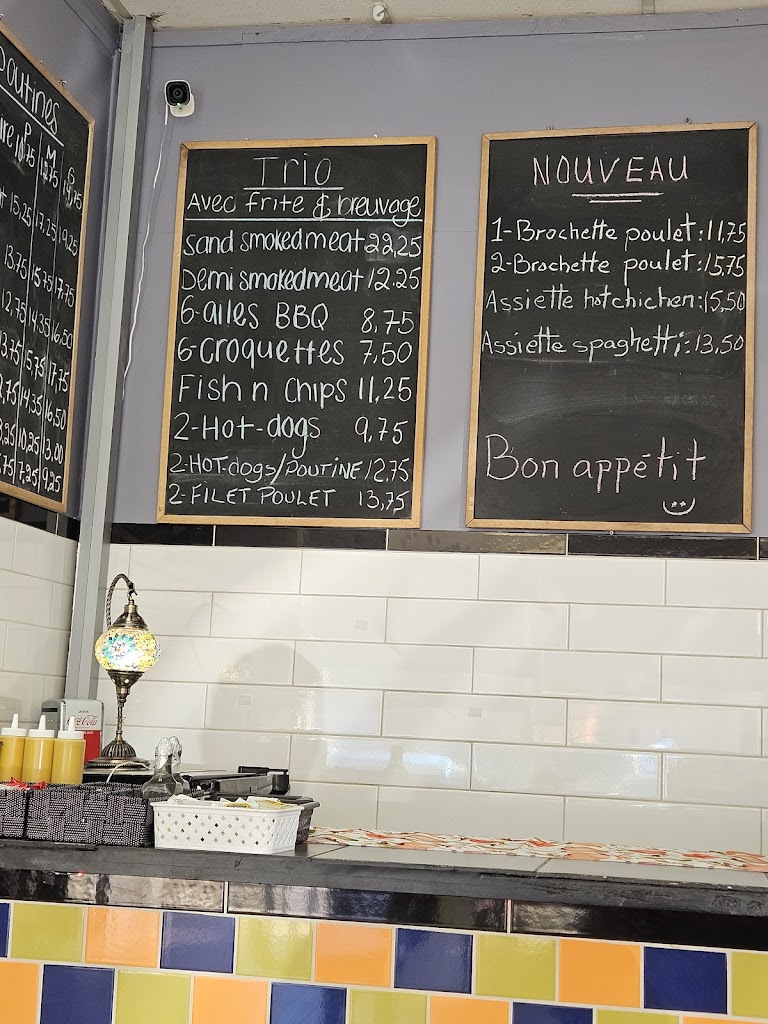 Poutines
P M G
10,75
15,25 17,25 19,25
13,75 15,75 17,75
12,75 14,35 16,50
13,75 15,75 17,75
14,35 16,50
10,25 13,00
7,25 9,25
Trio
Avec frite & breuvage
Sand smokedmeat 22,25
Demi smokedmeat 12,25
6-ailes BBQ 8,75
6-croquettes 7,50
Fish n chips 11,25
2-Hot-dogs 9,75
2-HOT-dogs/POUTINE 12,75
2-FILET POULET 13,75
NOUVEAU
1-Brochette poulet:11,75
2-Brochette poulet:15,75
Assiette hotchichen:15,50
Assiette spaghetti:13,50
Bon appétit
Coca-Cola